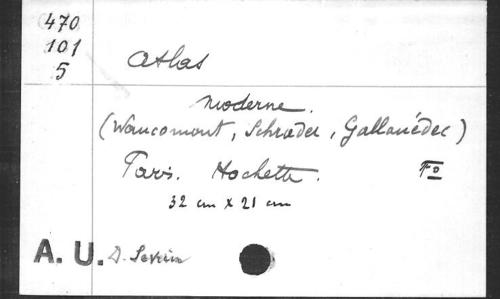 470
101
5
Atlas
moderne.
(Waucomont, Schrader, Gallouédec)
Paris. Hachette. Fo
32 cm x 21 cm
A. U. D. Severin